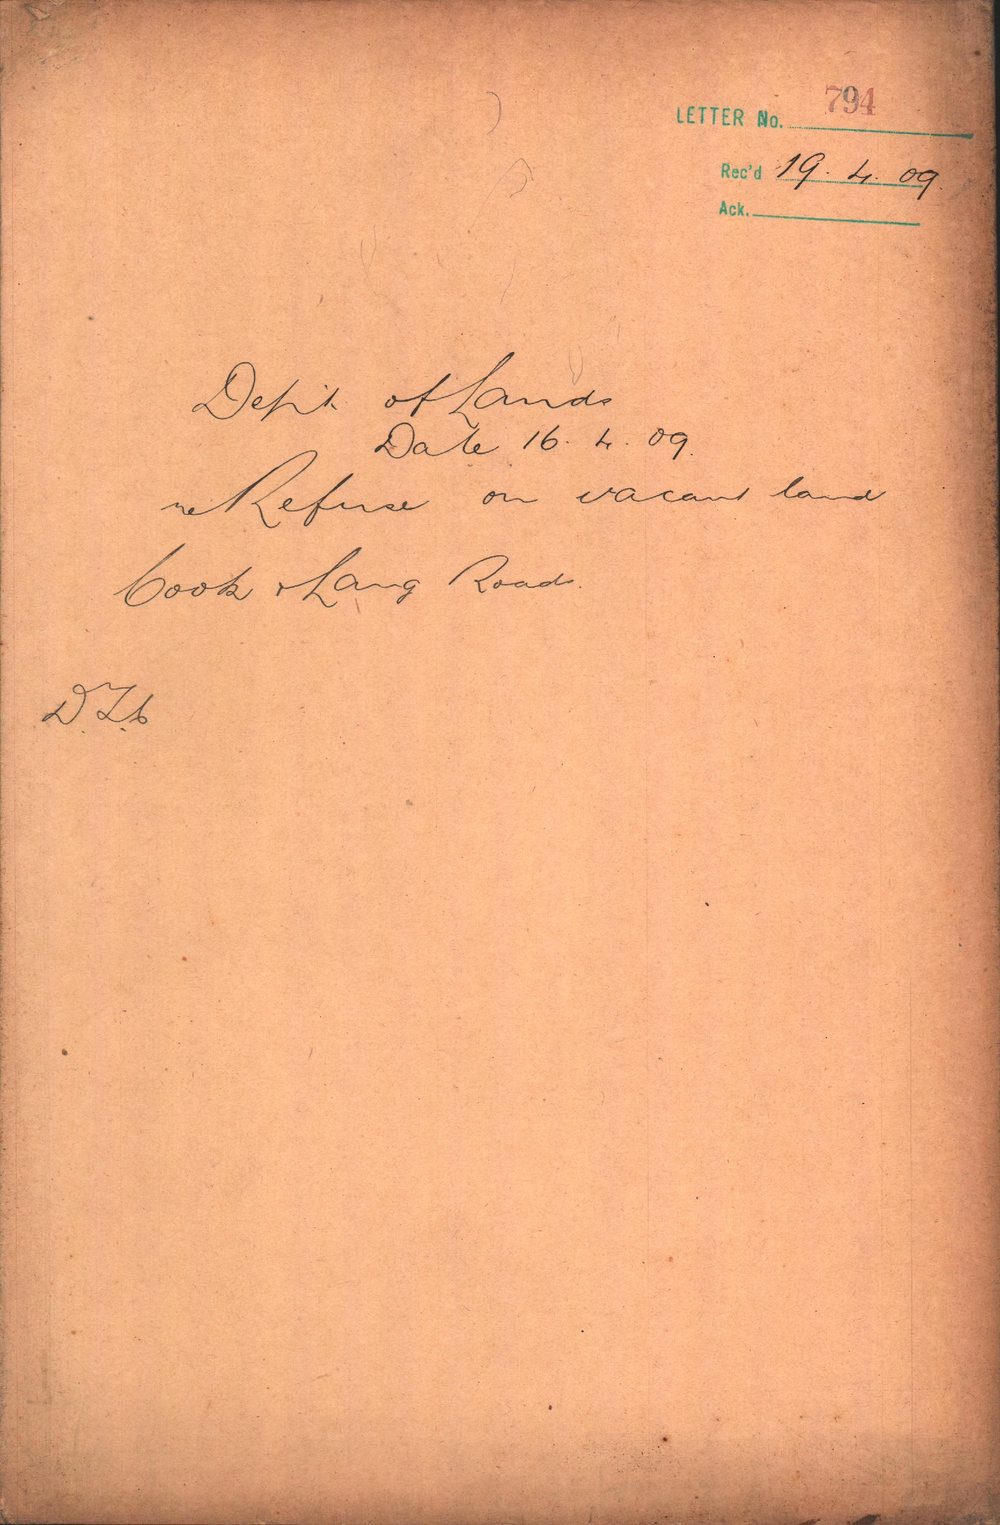 LETTER No. 794
Rec'd 19. 4. 09.
Ack.
Dept. of Lands
Date 16. 4. 09.
re Refuse on vacant land
Cook & Lang Roads.